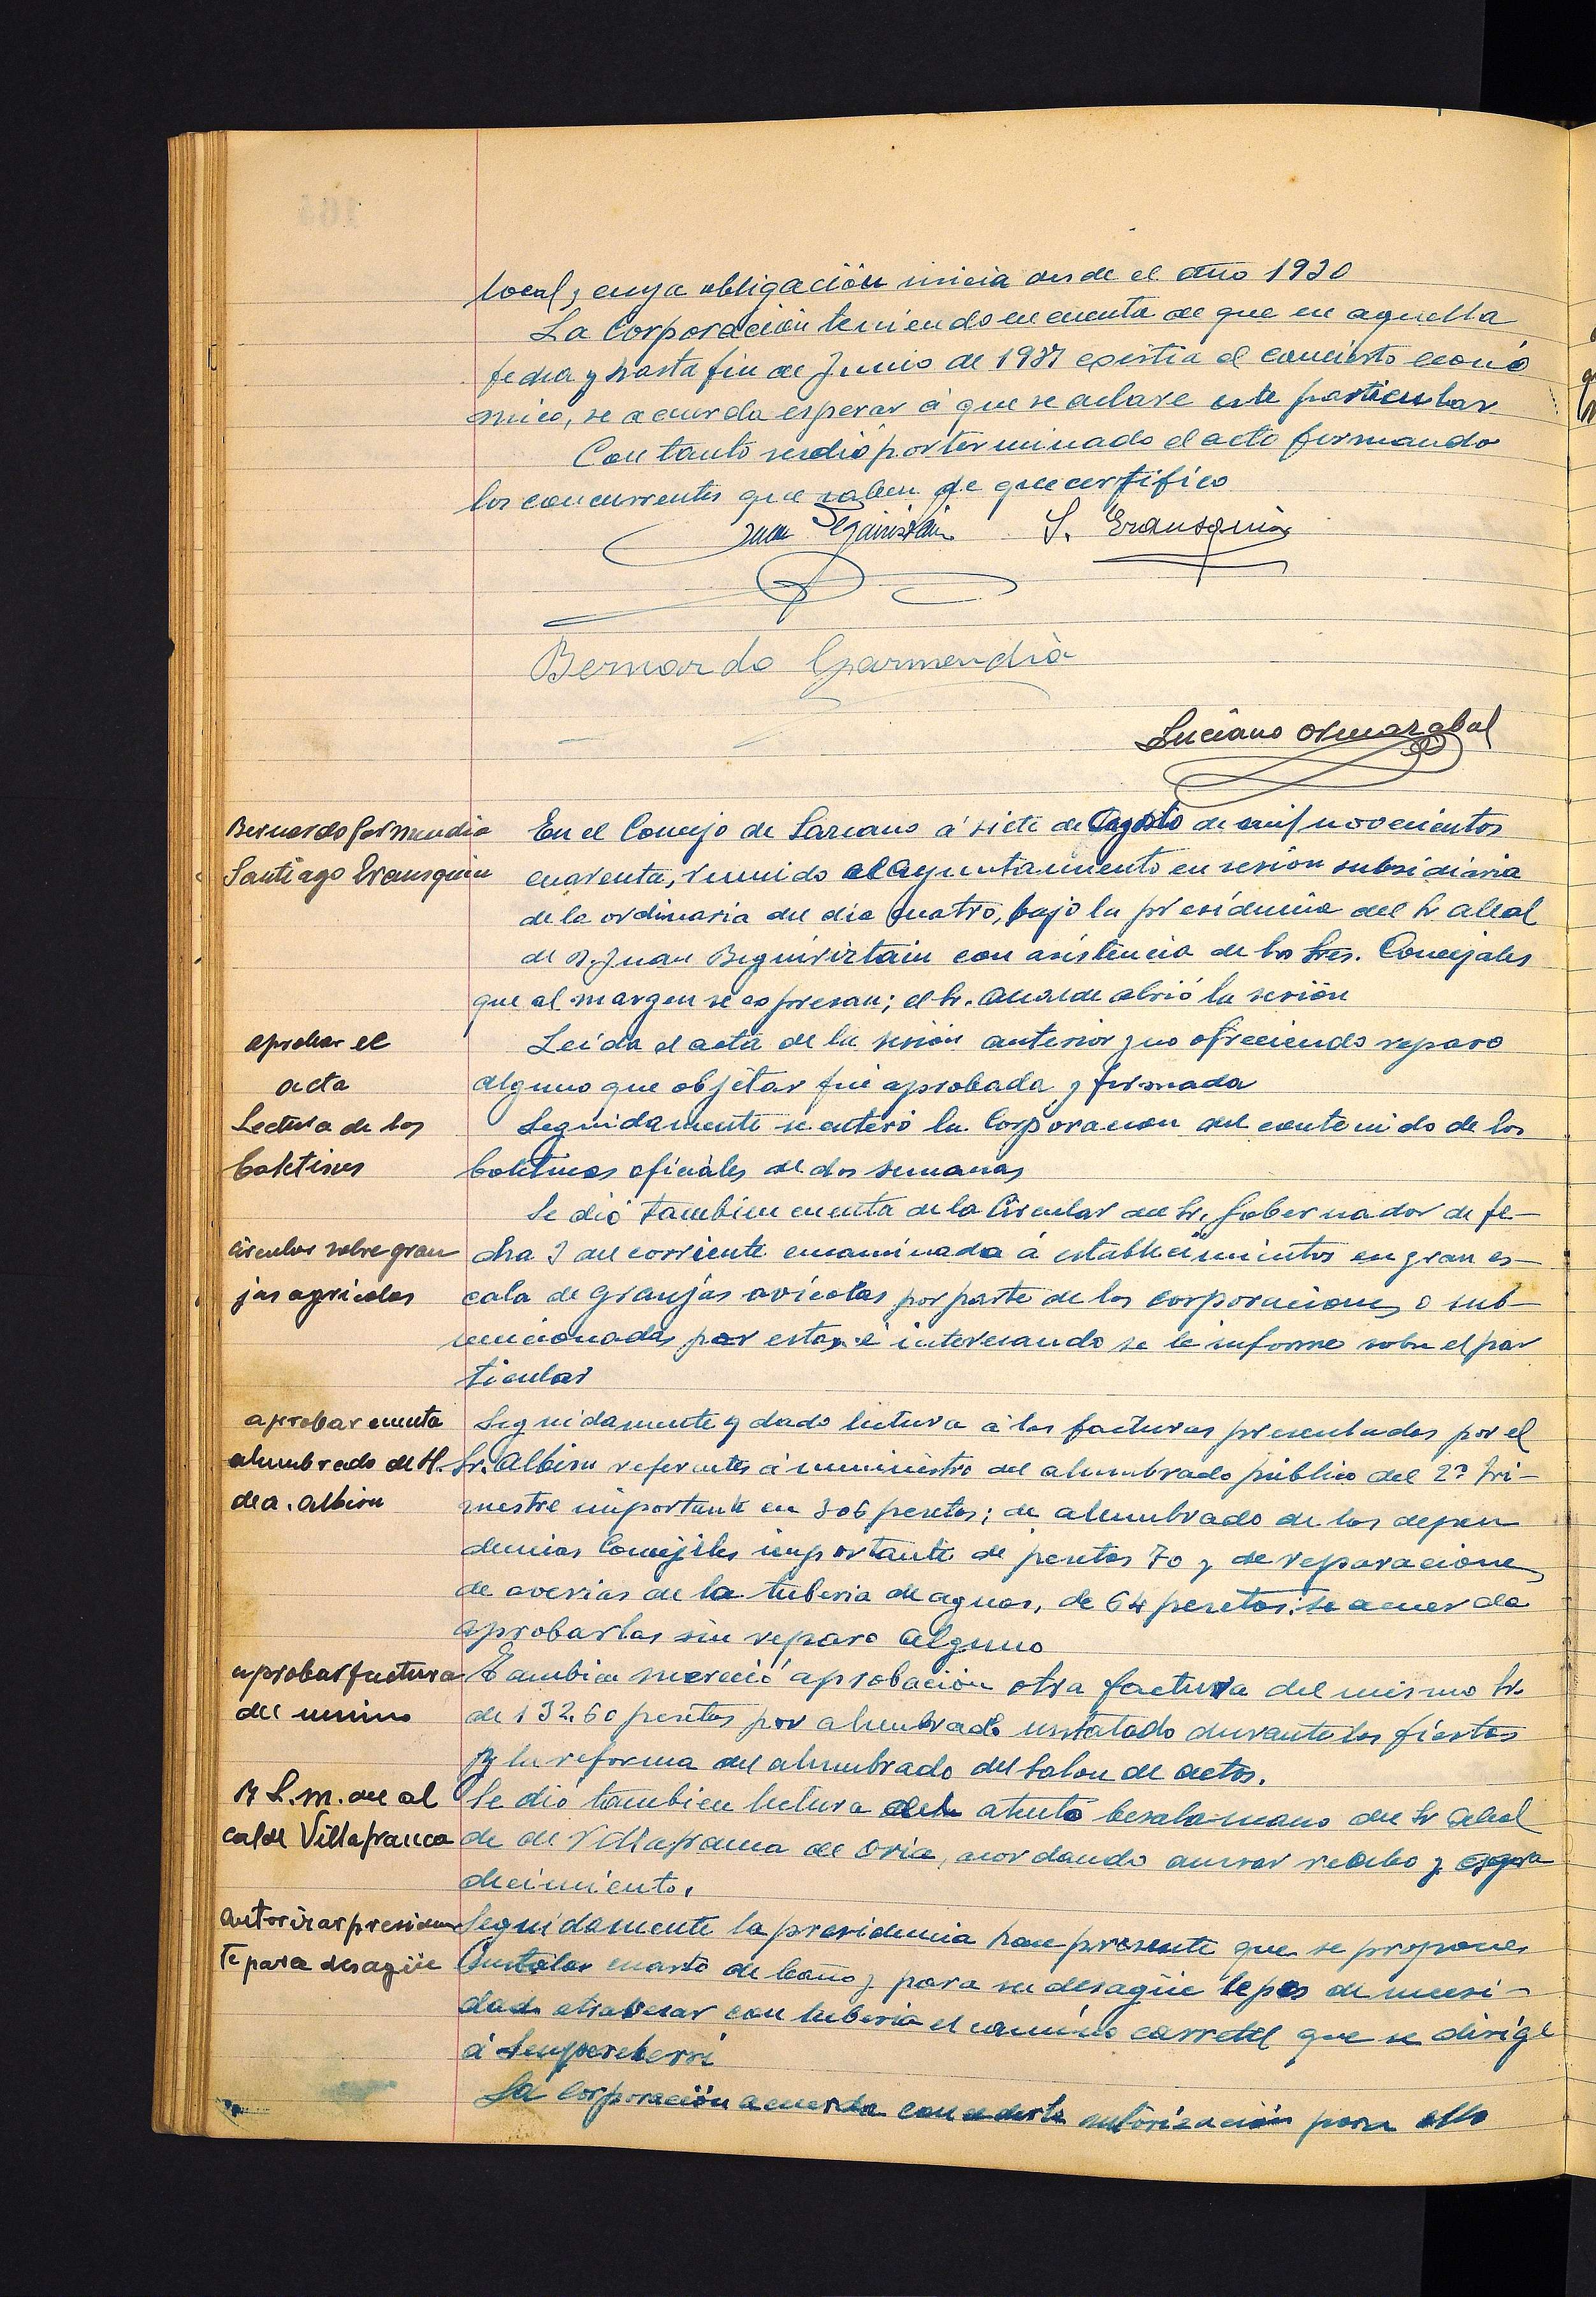 local, cuya obligación inicia desde el año 1920
La Corporación teniendo en cuenta de que en aquella
fecha y hasta fin de Junio de 1937 existia el concierto econó
mico, se acuerda esperar á que se aclare este particular
Con tanto se dió por terminado el acto firmando
los concurrentes que saben de que certifico
Juan S. Erausquin
Bernardo Garmendia
Luciano Ormazabal
Bernardo Garmendia
Santiago Erausquin
En el Concejo de Lazcano á siete de Agosto de mil novecientos
cuarenta, reunido el Ayuntamiento en sesión subsidiaria
de la ordinaria del dia cuatro, bajo la presidencia del Sr. Alcal
de D. Juan Beguiristain con asistencia de los Sres. Concejales
que al margen se espresan; el Sr. Alcalde abrió la sesión
aprobar el
acta
Leida el acta de la sesión anterior y no ofreciendo reparo
alguno que objetar fué aprobada y firmada
Lectura de los
boletines
Seguidamente se enteró la Corporacion del contenido de los
boletines oficiales de dos semanas
Se dió tambien cuenta de la Circular del Sr. Gobernador de fe-
circular sobre gran
jas agricolas
cha 3 del corriente encaminada á establecimientos en gran es-
cala de granjas avicolas por parte de las corporaciones o sub-
vencionadas por estas é interesando se le informe sobre el par
ticular
aprobar cuenta
alumbrado de H.
de A. Albisu
Seguidamente y dado lectura á las facturas presentadas por el
Sr. Albisu referentes á suministro del alumbrado público del 2º tri-
mestre importante en 306 pesetas; de alumbrado de las depen
dencias Concejiles importante de pesetas 70 y de reparaciones
de averias de la tuberia de aguas, de 64 pesetas; se acuerda
aprobarlas sin reparo alguno
aprobar factura
del mismo
Tambien mereció aprobación otra factura del mismo Sr.
de 132.60 pesetas por alumbrado instalado durante las fiestas
y la reforma del alumbrado del Salon de actos.
B. L. M. del al
calde Villafranca
Se dio tambien lectura del atento besalamano del Sr Alcal
de de Villafranca de Oria, acordando acusar recibo y agra
decimiento.
autorizar presiden
te para desagüe
Seguidamente la presidencia hace presente que se propone
Instalar cuarto de baño y para su desagüe le es de necesi-
dad atrabesar con tuberia el camino carretil que se dirige
á Sempereberri
La corporación acuerda concederle autorización para ello